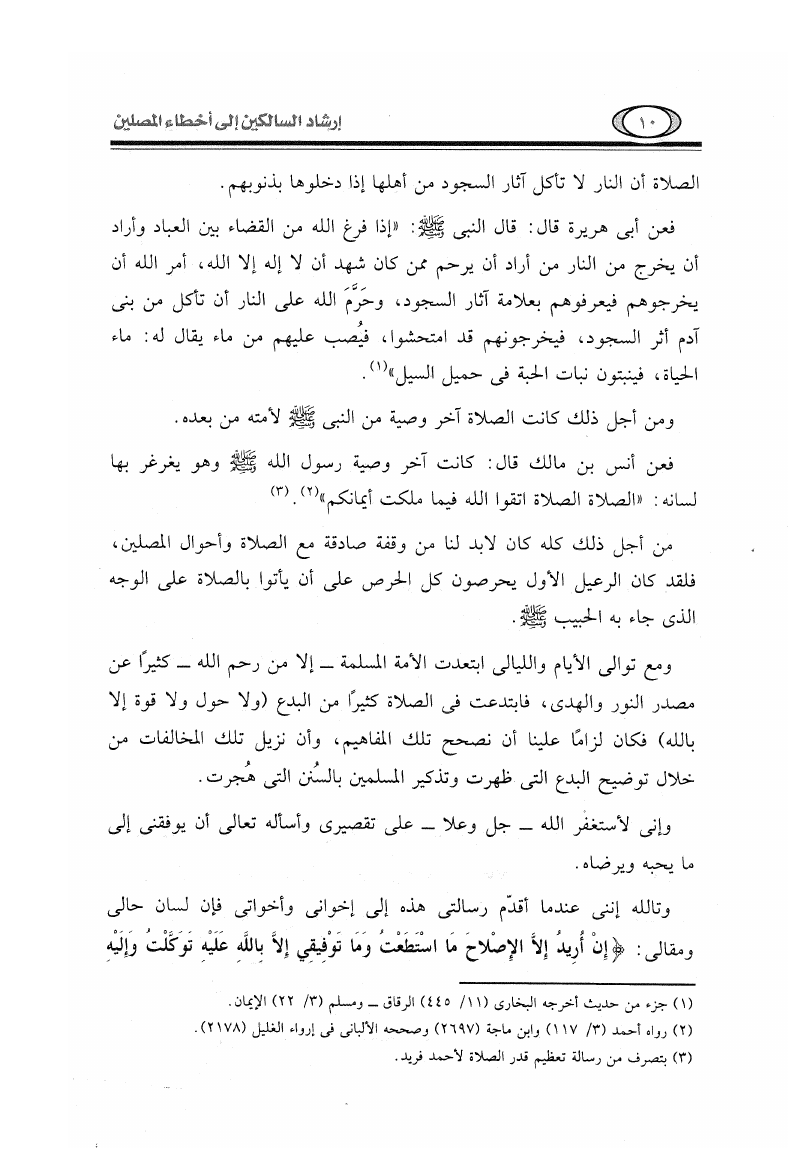 ١٠ إرشاد السالكين إلى أخطاء المصلين
الصلاة أن النار لا تأكل آثار السجود من أهلها إذا دخلوها بذنوبهم.
فعن أبى هريرة قال: قال النبى ﷺ: «إذا فرغ الله من القضاء بين العباد وأراد
أن يخرج من النار من أراد أن يرحم ممن كان شهد أن لا إله إلا الله، أمر الله أن
يخرجوهم فيعرفوهم بعلامة آثار السجود، وحَرَّمَ الله على النار أن تأكل من بنى
آدم أثر السجود، فيخرجونهم قد امتحشوا، فيُصب عليهم من ماء يقال له: ماء
الحياة، فينبتون نبات الحبة فى حميل السيل»(١).
ومن أجل ذلك كانت الصلاة آخر وصية من النبى ﷺ لأمته من بعده.
فعن أنس بن مالك قال: كانت آخر وصية رسول الله ﷺ وهو يغرغر بها
لسانه: «الصلاة الصلاة اتقوا الله فيما ملكت أيمانكم»(٢).(٣)
من أجل ذلك كله كان لابد لنا من وقفة صادقة مع الصلاة وأحوال المصلين،
فلقد كان الرعيل الأول يحرصون كل الحرص على أن يأتوا بالصلاة على الوجه
الذى جاء به الحبيب ﷺ.
ومع توالى الأيام والليالى ابتعدت الأمة المسلمة ـ إلا من رحم الله ـ كثيرًا عن
مصدر النور والهدى، فابتدعت فى الصلاة كثيرًا من البدع (ولا حول ولا قوة إلا
بالله) فكان لزامًا علينا أن نصحح تلك المفاهيم، وأن نزيل تلك المخالفات من
خلال توضيح البدع التى ظهرت وتذكير المسلمين بالسُنن التى هُجرت.
وإنى لأستغفر الله ـ جل وعلا ـ على تقصيرى وأسأله تعالى أن يوفقنى إلى
ما يحبه ويرضاه.
وتالله إننى عندما أقدّم رسالتى هذه إلى إخوانى وأخواتى فإن لسان حالى
ومقالى: ﴿إِنْ أُرِيدُ إِلاَّ الإِصْلاحَ مَا اسْتَطَعْتُ وَمَا تَوْفِيقِي إِلاَّ بِاللَّهِ عَلَيْهِ تَوَكَّلْتُ وَإِلَيْهِ
(١) جزء من حديث أخرجه البخارى (١١/ ٤٤٥) الرقاق ـ ومسلم (٣/ ٢٢) الإيمان.
(٢) رواه أحمد (٣/ ١١٧) وابن ماجة (٢٦٩٧) وصححه الألبانى فى إرواء الغليل (٢١٧٨).
(٣) بتصرف من رسالة تعظيم قدر الصلاة لأحمد فريد.